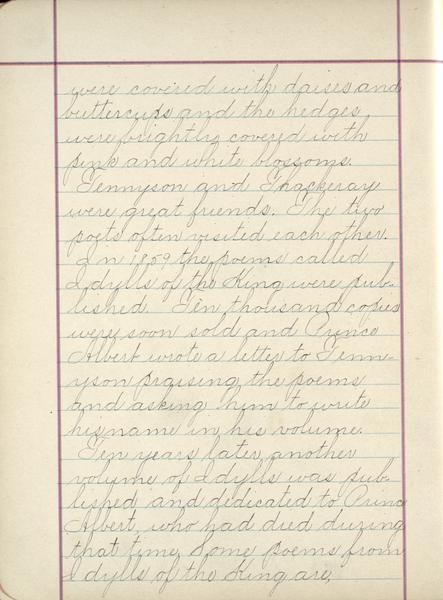 were covered with daises and
buttercups and the hedges
were brightly covered with
pink and white blossoms.
Tennyson and Thackeray
were great friends. The two
poets often visited each other.
In 1859 the poems called
Idylls of the King were pub-
lished. Ten thousand copies
were soon sold and Prince
Albert wrote a letter to Tenn-
yson praising the poems
and asking him to write
his name in his volume.
Ten years later another
volume of Idylls was pub-
lished and dedicated to Prince
Albert, who had died during
that time. Some poems from
Idylls of the King are,